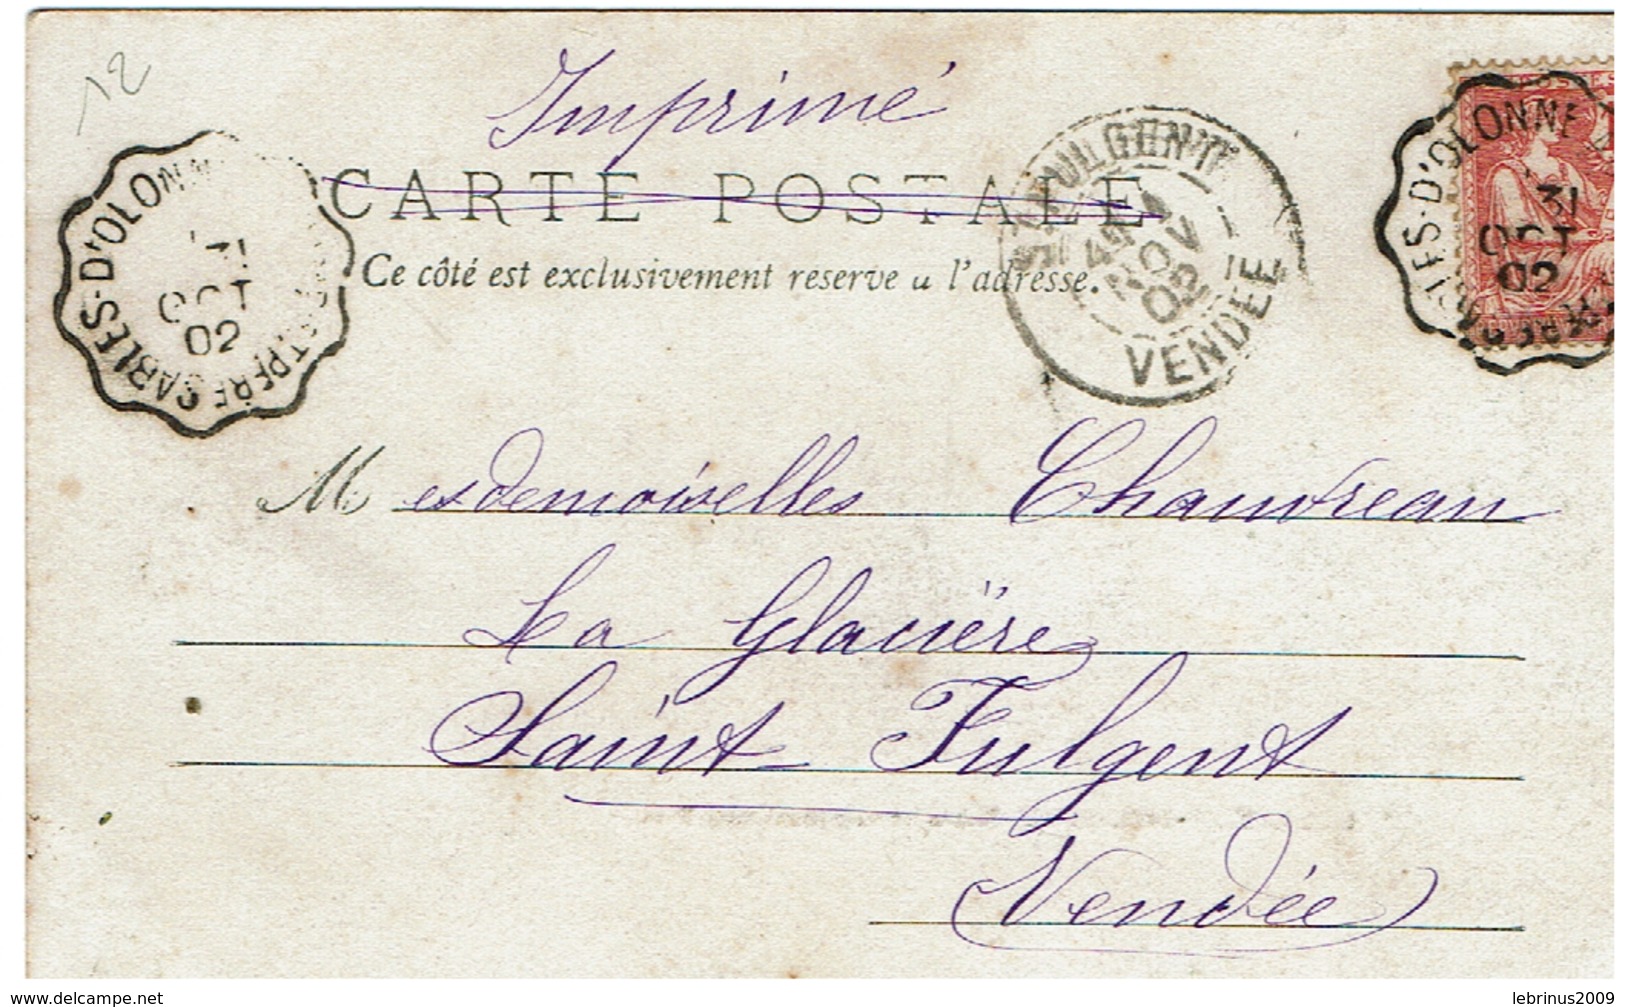 12
Imprimé
CARTE POSTALE
Ce côté est exclusivement reserve a l'adresse.
SABLES-D'OLONNE
31
OCT
02
FULGENT
NOV
02
VENDÉE
D'OLONNE
31
OCT
02
Mesdemoiselles Chandreau
La Glacière
Saint Fulgent
Vendée
www.delcampe.net
lebrinus2009